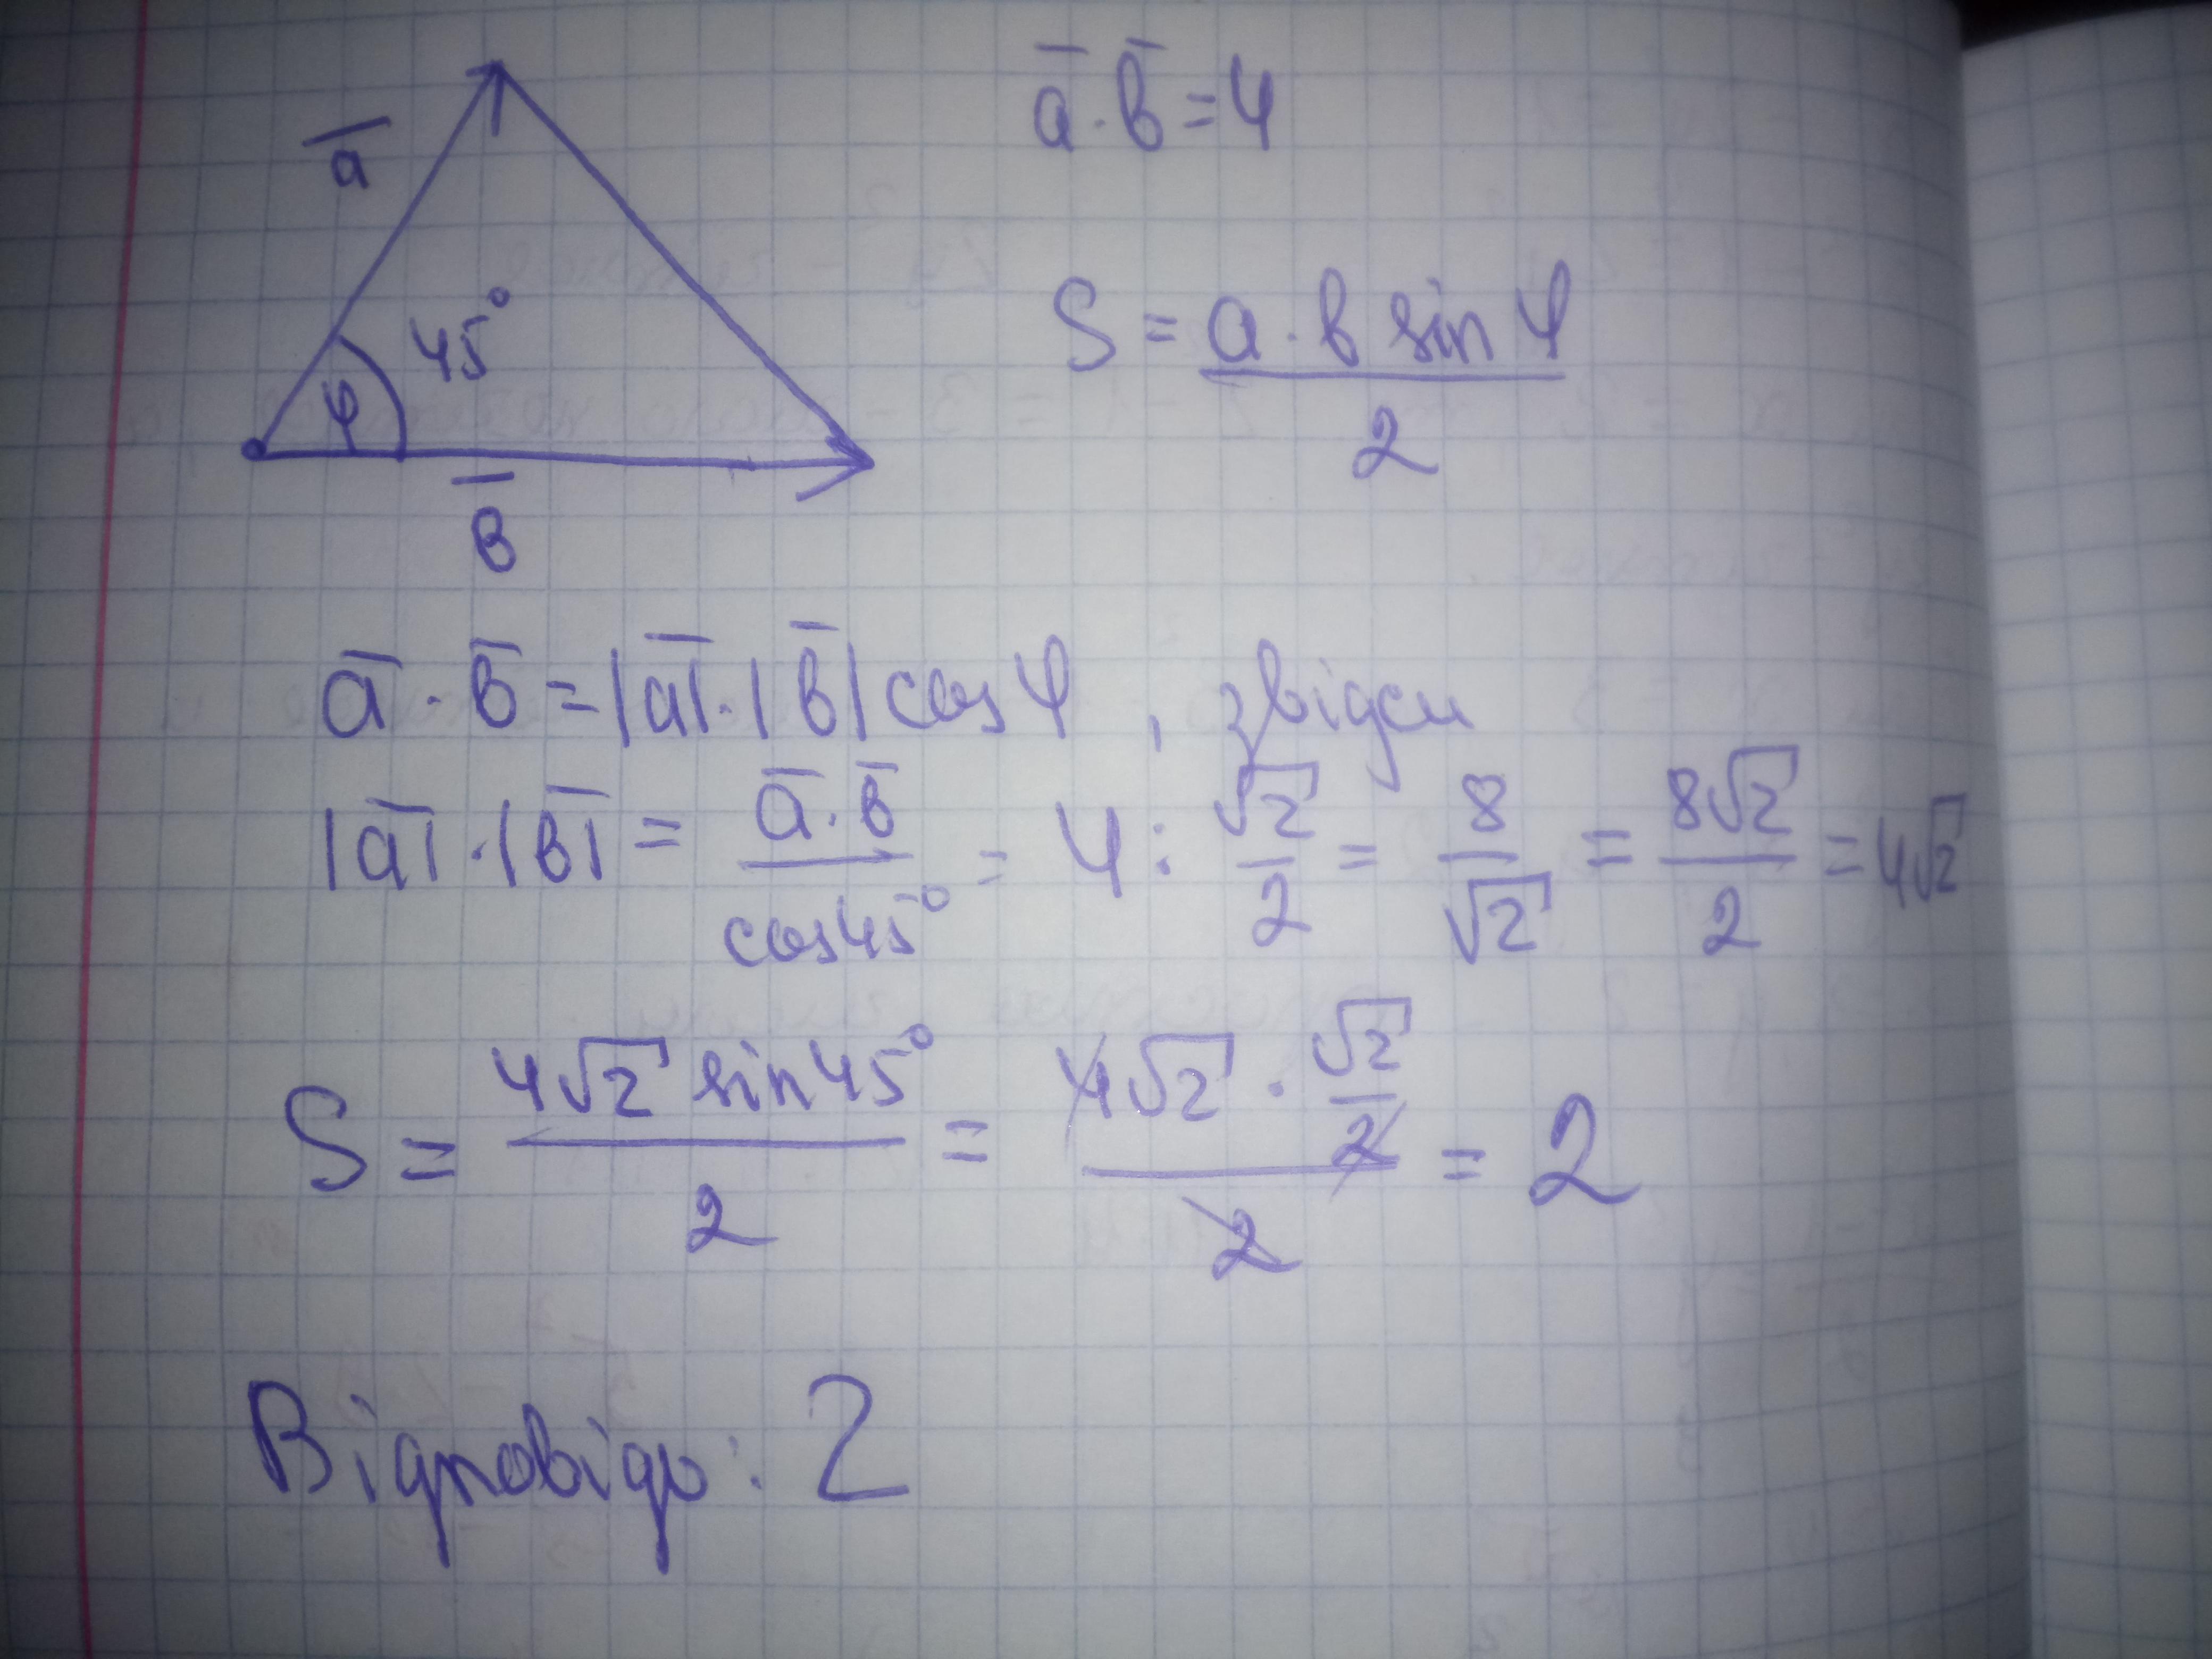 a̅
45°
φ
b̅
a̅ · b̅ = 4
S = a · b sin φ / 2
a̅ · b̅ = |a̅| · |b̅| cos φ , звідси
|a̅| · |b̅| = a̅ · b̅ / cos 45° = 4 : √2 / 2 = 8 / √2 = 8√2 / 2 = 4√2
S = 4√2 sin 45° / 2 = 4√2 · √2 / 2 / 2 = 2
Відповідь: 2